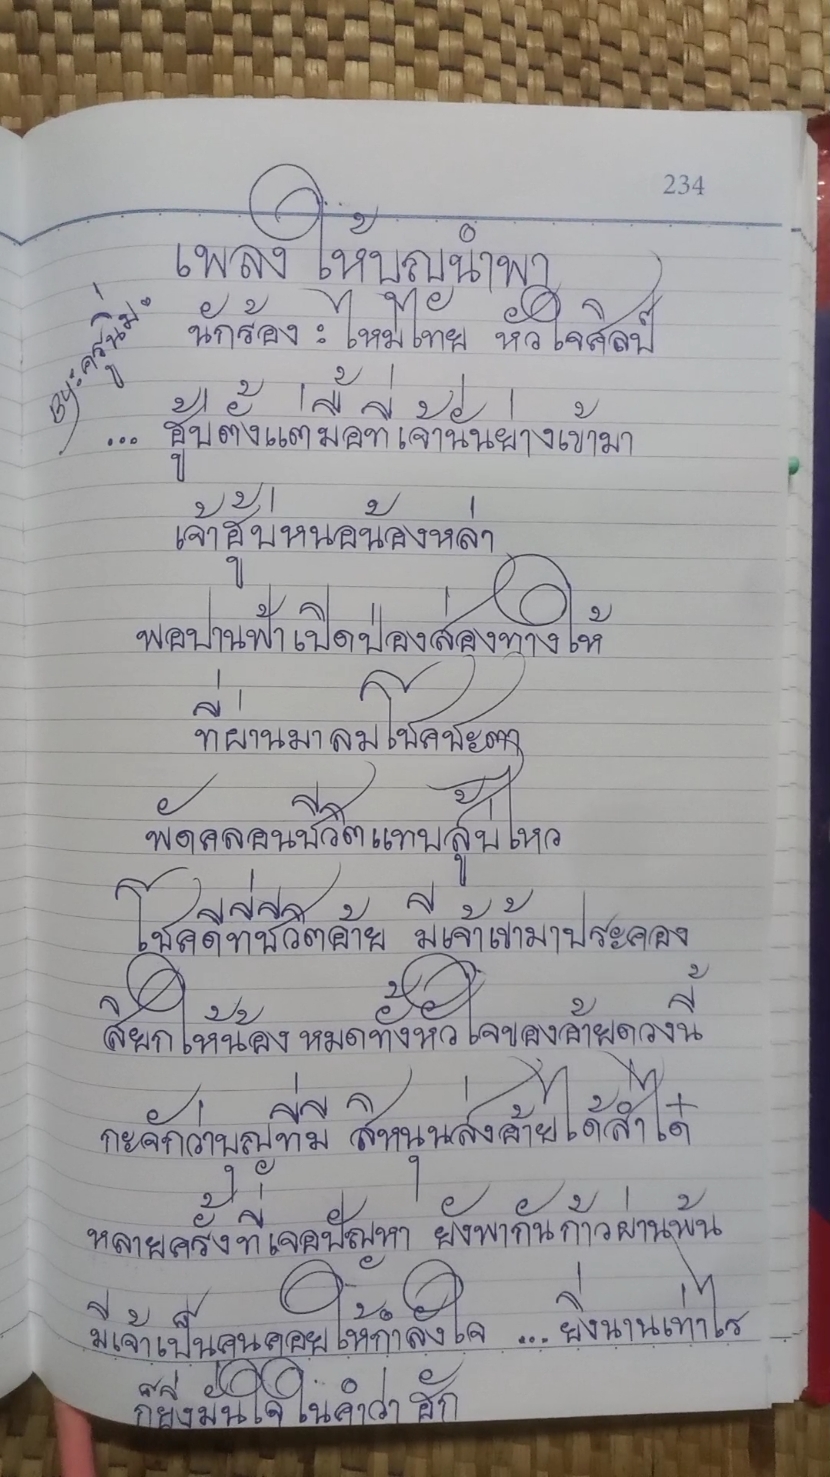 234
เพลง ให้บุญนำพา
นักร้อง : ไหมไทย หัวใจศิลป์
By: ครูนิ่ม.
... ฮู้บ่ตั้งแต่มื้อที่เจ้านั่นย่างเข้ามา
เจ้าฮู้บ่หนอน้องหล่า
พอปานฟ้าเปิดป่องส่องทางให้
ที่ผ่านมาลมโชคชะตา
พัดคลอนชีวิตแทบสู้บ่ไหว
โชคดีที่ชีวิตอ้าย มีเจ้าเข้ามาประคอง
สิยกให้น้อง หมดทั้งหัวใจของอ้ายดวงนี้
กะจักว่าบุญที่มี สิหนุนส่งอ้ายได้ส่ำใด๋
หลายครั้งที่เจอปัญหา ยังพากันก้าวผ่านพ้น
มีเจ้าเป็นคนคอยให้กำลังใจ ... ยิ่งนานเท่าไร
ก็ยิ่งมั่นใจในคำว่า ฮัก